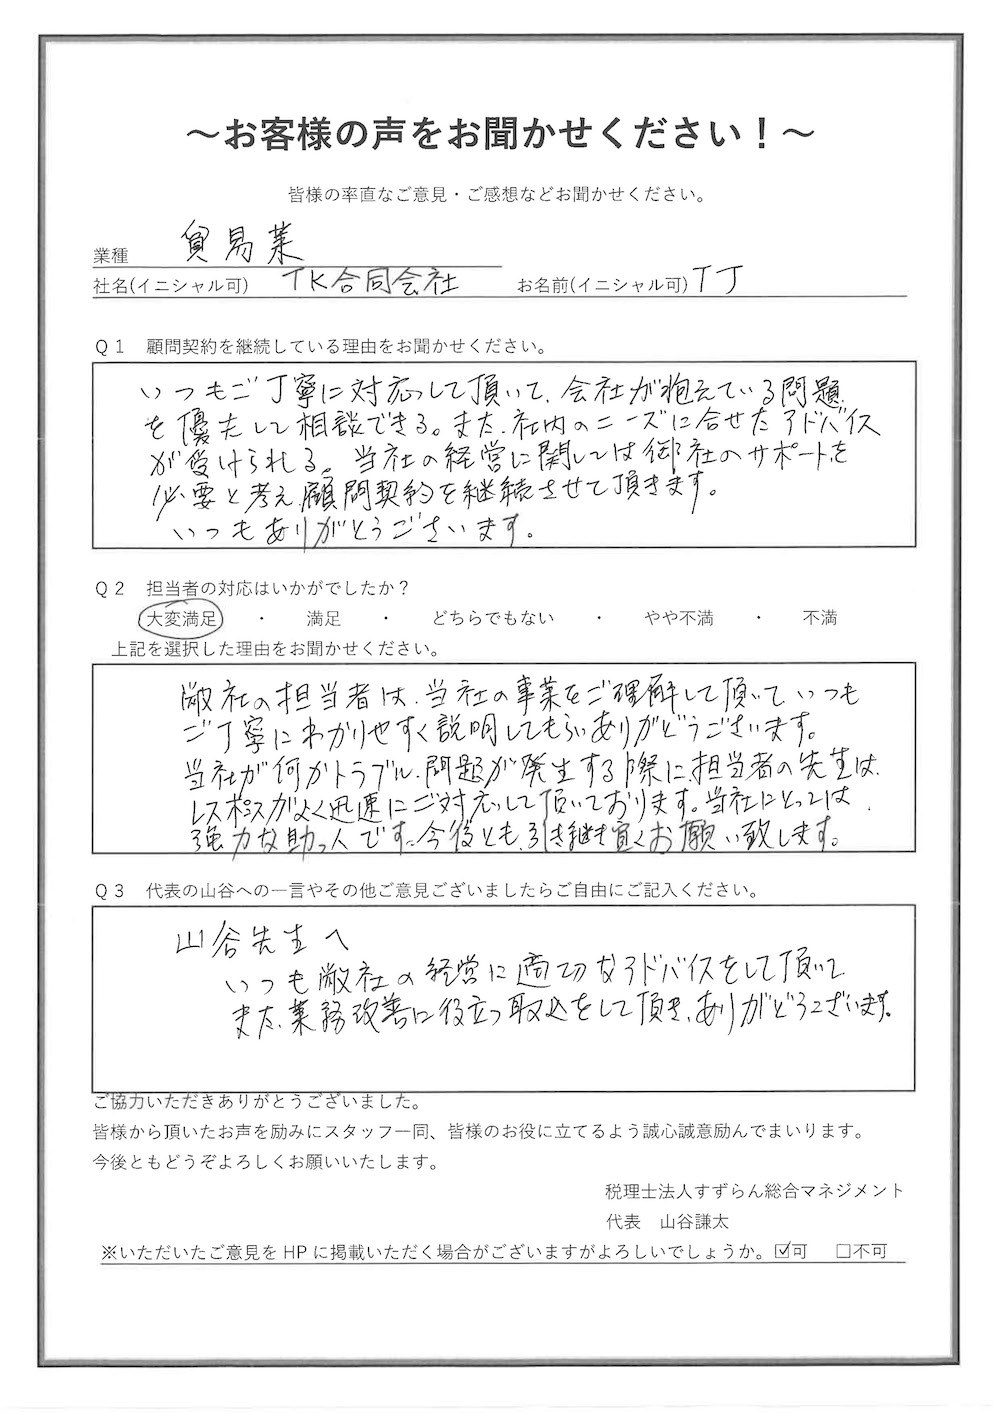 ～お客様の声をお聞かせください！～
皆様の率直なご意見・ご感想などお聞かせください。
業種 貿易業
社名(イニシャル可) TK合同会社 お名前(イニシャル可) TJ
Ｑ１ 顧問契約を継続している理由をお聞かせください。
いつもご丁寧に対応して頂いて、会社が抱えている問題
を優先して相談できる。また、社内のニーズに合せたアドバイス
が受けられる。当社の経営に関しては御社のサポートを
必要と考え、顧問契約を継続させて頂きます。
いつもありがとうございます。
Ｑ２ 担当者の対応はいかがでしたか？
大変満足 ・ 満足 ・ どちらでもない ・ やや不満 ・ 不満
上記を選択した理由をお聞かせください。
敝社の担当者は、当社の事業をご理解して頂いていつも
ご丁寧にわかりやすく説明してもらいありがとうございます。
当社が何かトラブル、問題が発生する際に、担当者の先生は、
レスポンスがよく迅速にご対応して頂いております。当社にとっては、
強力な助っ人です。今後とも、引き継き宜くお願い致します。
Ｑ３ 代表の山谷への一言やその他ご意見ございましたらご自由にご記入ください。
山谷先生へ
いつも敝社の経営に適切なアドバイスをして頂いて
また、業務改善に役立つ取込をして頂き、ありがとうございます。
ご協力いただきありがとうございました。
皆様から頂いたお声を励みにスタッフ一同、皆様のお役に立てるよう誠心誠意励んでまいります。
今後ともどうぞよろしくお願いいたします。
税理士法人すずらん総合マネジメント
代表 山谷謙太
※いただいたご意見をHPに掲載いただく場合がございますがよろしいでしょうか。☑可 □不可